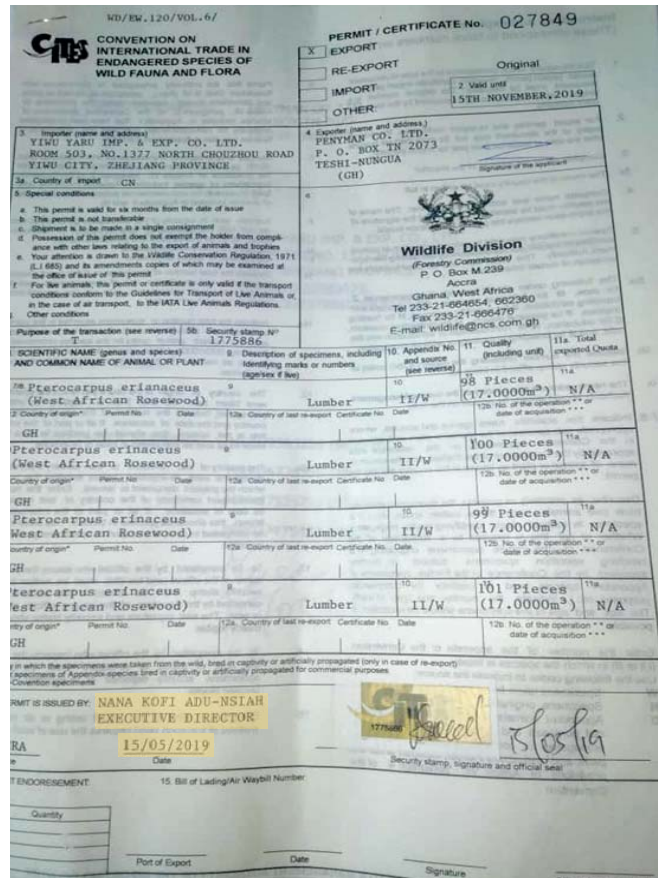 WD/EW.120/VOL.6/
PERMIT / CERTIFICATE No. 027849
CITES
CONVENTION ON
INTERNATIONAL TRADE IN
ENDANGERED SPECIES OF
WILD FAUNA AND FLORA
X EXPORT
RE-EXPORT
IMPORT
OTHER:
Original
2. Valid until
15TH NOVEMBER,2019
3. Importer (name and address)
YIWU YARU IMP. & EXP. CO. LTD.
ROOM 503, NO.1377 NORTH CHOUZHOU ROAD
YIWU CITY, ZHEJIANG PROVINCE
3a. Country of import CN
4. Exporter (name and address)
PENYMAN CO. LTD.
P. O. BOX TN 2073
TESHI-NUNGUA
(GH)
Signature of the applicant
5. Special conditions
a. This permit is valid for six months from the date of issue
b. This permit is not transferable
c. Shipment is to be made in a single consignment
d. Possession of this permit does not exempt the holder from compli-
ance with other laws relating to the export of animals and trophies
e. Your attention is drawn to the Wildlife Conservation Regulation, 1971
(L.I 685) and its amendments copies of which may be examined at
the office of issue of this permit
f. For live animals, this permit or certificate is only valid if the transport
conditions conform to the Guidelines for Transport of Live Animals or,
in the case of air transport, to the IATA Live Animals Regulations.
Other conditions
6.
Wildlife Division
(Forestry Commission)
P. O. Box M.239
Accra
Ghana, West Africa
Tel 233-21-664654, 662360
Fax 233-21-666476
E-mail: wildlife@ncs.com.gh
Purpose of the transaction (see reverse)
T
5b. Security stamp Nº
1775886
SCIENTIFIC NAME (genus and species)
AND COMMON NAME OF ANIMAL OR PLANT
9. Description of specimens, including
Identifying marks or numbers
(age/sex if live)
10. Appendix No.
and source
(see reverse)
11. Quality
(including unit)
11a. Total
exported Quota
Pterocarpus erianaceus
(West African Rosewood)
9
Lumber
10.
II/W
98 Pieces
(17.0000m³)
11a
N/A
Country of origin* Permit No. Date
GH
12a. Country of last re-export Certificate No. Date
12b. No. of the operation ** or
date of acquisition ***
Pterocarpus erinaceus
(West African Rosewood)
9
Lumber
10.
II/W
100 Pieces
(17.0000m³)
11a
N/A
Country of origin* Permit No. Date
GH
12a. Country of last re-export Certificate No. Date
12b. No. of the operation ** or
date of acquisition ***
Pterocarpus erinaceus
West African Rosewood)
9
Lumber
10.
II/W
99 Pieces
(17.0000m³)
11a
N/A
ountry of origin* Permit No. Date
GH
12a. Country of last re-export Certificate No. Date
12b. No. of the operation ** or
date of acquisition ***
terocarpus erinaceus
est African Rosewood)
9.
Lumber
10.
II/W
101 Pieces
(17.0000m³)
11a
N/A
try of origin* Permit No. Date
GH
12a. Country of last re-export Certificate No. Date
12b. No. of the operation ** or
date of acquisition ***
in which the specimens were taken from the wild, bred in captivity or artificially propagated (only in case of re-export)
specimens of Appendix-species bred in captivity or artificially propagated for commercial purposes
Covention specimens
RMIT IS ISSUED BY: NANA KOFI ADU-NSIAH
EXECUTIVE DIRECTOR
RA
15/05/2019
Date
1775886
15/05/19
Security stamp, signature and official seal
T ENDORESEMENT:
15. Bill of Lading/Air Waybill Number
Quantity
Port of Export
Date
Signature